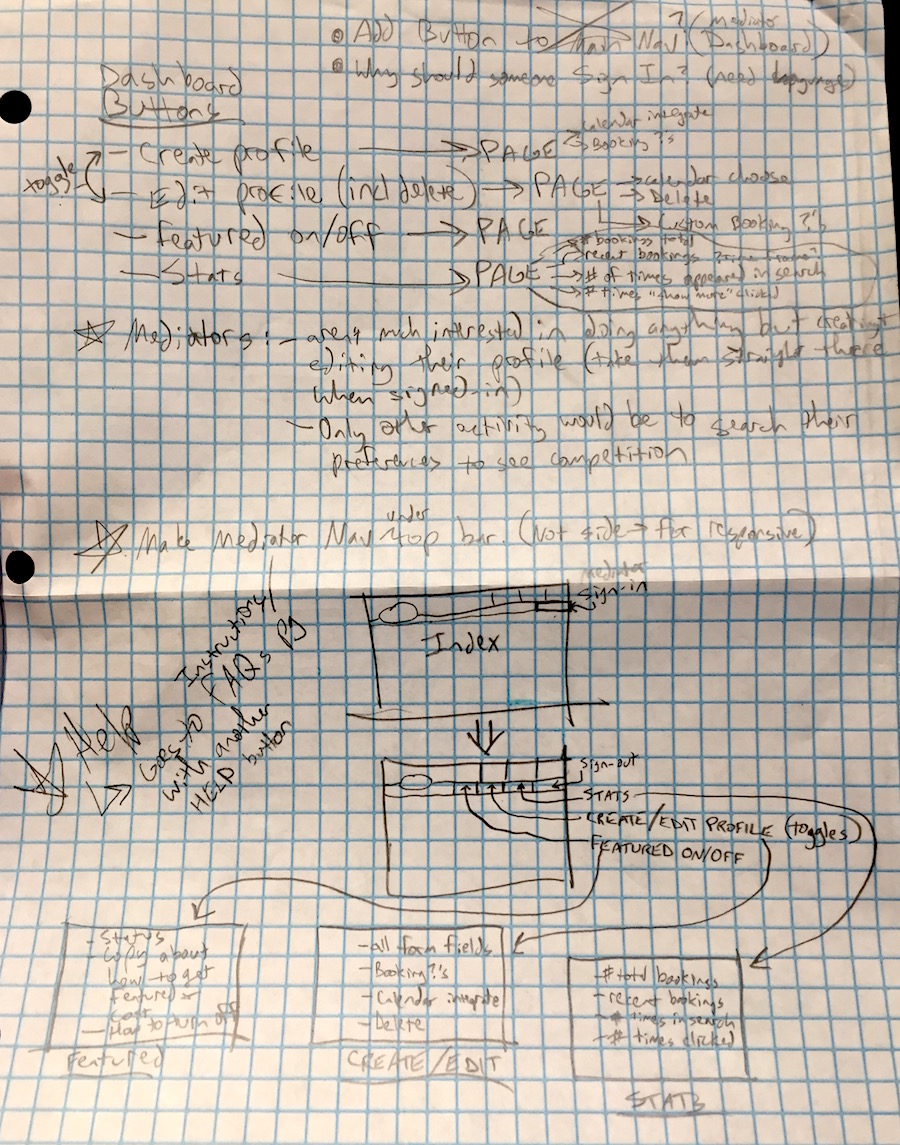 • Add Button to Main Nav? (Mediator Dashboard)
• Why should someone Sign In? (need language)
Dashboard
Buttons
toggle
- Create profile → PAGE → calendar integrate
→ Booking ?'s
- Edit profile (incl delete) → PAGE → calendar choose
→ Delete
→ Custom Booking ?'s
- Featured on/off → PAGE
- Stats → PAGE → # bookings total
→ recent bookings ?time frame?
→ # of times appeared in search
→ # times "show more" clicked
☆ Mediators: - aren't much interested in doing anything but creating +
editing their profile (take them straight there
when signed-in)
- Only other activity would be to search their
preferences to see competition
☆ Make Mediator Nav under top bar. (Not side → for responsive)
☆ Help
↳ Goes to Instructions/
FAQs pg
with another
HELP button
mediator
sign-in
Index
sign-out
STATS
CREATE/EDIT PROFILE (toggles)
FEATURED ON/OFF
- Status
- Copy about
how to get
featured +
cost
- How to turn off
Featured
- all form fields
- Booking ?'s
- Calendar integrate
- Delete
CREATE/EDIT
- # total bookings
- recent bookings
- # times in search
- # times clicked
STATS